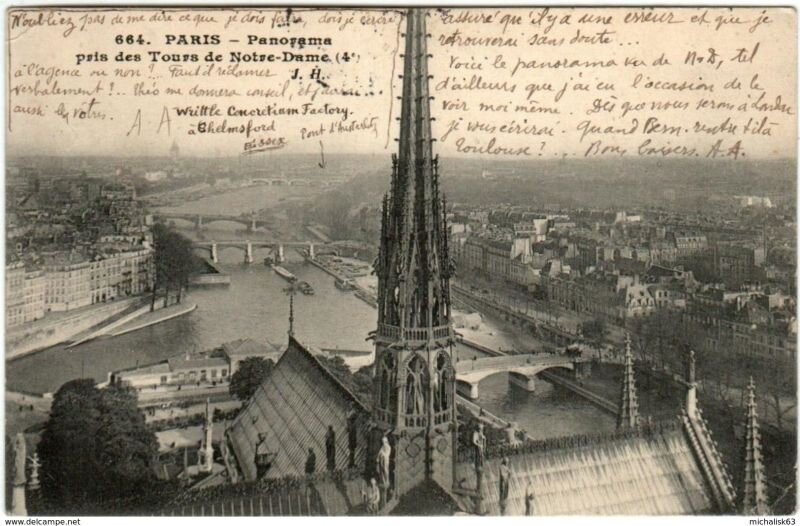 N'oubliez pas de me dire ce que je dois faire, dois je écrire
664. PARIS - Panorama
pris des Tours de Notre-Dame (4e)
J. H.
à l'agence ou non ? Faut-il réclamer
verbalement ? .. me donnera conseil, et j'aurai
aussi les vôtres. A A
Writtle Concretiam Factory.
à Chelmsford
Essex
Pont d'Austerlitz
assuré qu'il y a une erreur et que je
retrouverai sans doute...
Voici le panorama vu de N.D, tel
d'ailleurs que j'ai eu l'occasion de le
voir moi même. Dès que nous serons à London
je vous écrirai. Quand rentre t-il à
Toulouse ? .. Bons baisers. A.A.
michalisk63